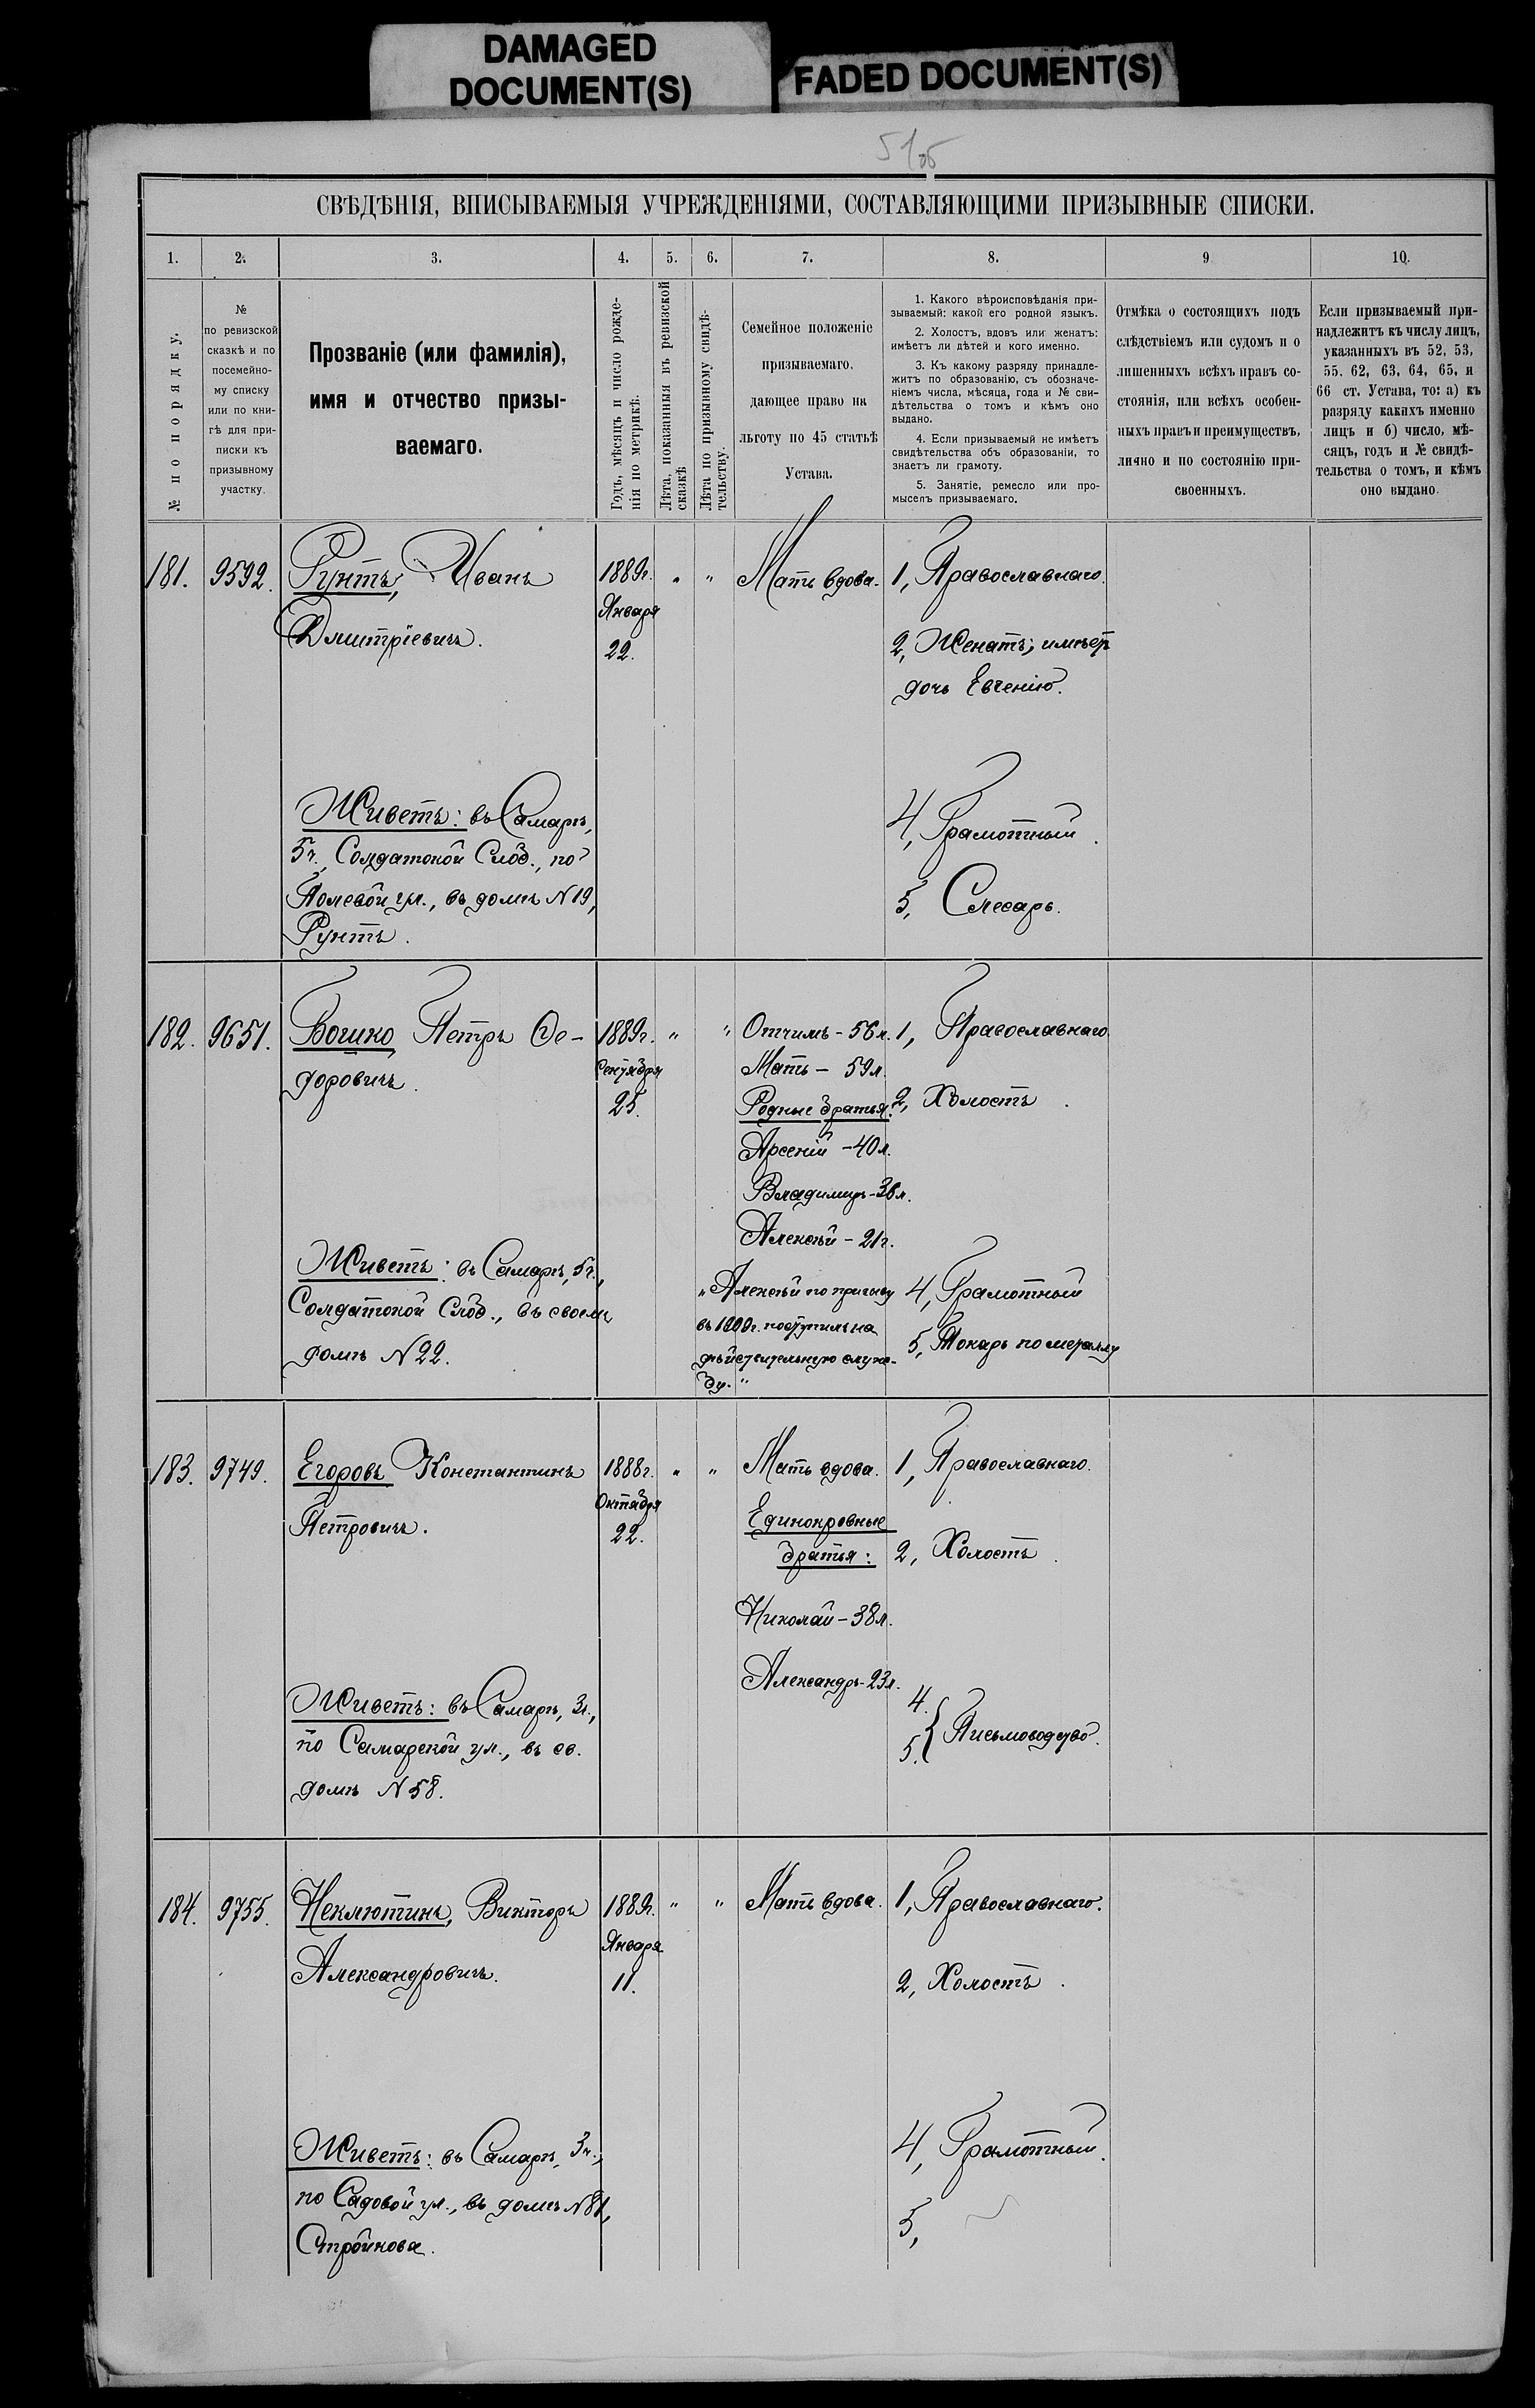 DAMAGED
DOCUMENT(S)
FADED DOCUMENT(S)
51 об
СВѢДѢНІЯ, ВПИСЫВАЕМЫЯ УЧРЕЖДЕНІЯМИ, СОСТАВЛЯЮЩИМИ ПРИЗЫВНЫЕ СПИСКИ.
1. 2. 3. 4. 5. 6. 7. 8. 9 10.
№ по порядку.
№
по ревизской
сказкѣ и по
посемейно-
му списку
или по кни-
гѣ для при-
писки къ
призывному
участку.
Прозваніе (или фамилія),
имя и отчество призы-
ваемаго.
Годъ, мѣсяцъ и число рожде-
нія по метрикѣ.
Лѣта, показанныя въ ревизской
сказкѣ
Лѣта по призывному свидѣ-
тельству.
Семейное положеніе
призываемаго,
дающее право на
льготу по 45 статьѣ
Устава.
1. Какого вѣроисповѣданія при-
зываемый: какой его родной языкъ.
2. Холостъ, вдовъ или женатъ:
имѣетъ ли дѣтей и кого именно.
3. Къ какому разряду принадле-
житъ по образованію, съ обозначе-
ніемъ числа, мѣсяца, года и № сви-
дѣтельства о томъ и кѣмъ оно
выдано.
4. Если призываемый не имѣетъ
свидѣтельства объ образованіи, то
знаетъ ли грамоту.
5. Занятіе, ремесло или про-
мыселъ призываемаго.
Отмѣка о состоящихъ подъ
слѣдствіемъ или судомъ и о
лишенныхъ всѣхъ правъ со-
стоянія, или всѣхъ особен-
ныхъ правъ и преимуществъ,
лично и по состоянію при-
своенныхъ.
Если призываемый при-
надлежитъ къ числу лицъ,
указанныхъ въ 52, 53,
55. 62, 63, 64, 65, и
66 ст. Устава, то: а) къ
разряду какихъ именно
лицъ и б) число, мѣ-
сяцъ, годъ и № свидѣ-
тельства о томъ, и кѣмъ
оно выдано.
181. 9592. Рунтъ, Иванъ
Дмитріевичъ.
Живетъ: въ Самарѣ,
5ч., Солдатской Слоб., по
Полевой ул., въ домѣ N 19,
Рунтъ.
1889г.
Января
22.
" "
Мать вдова.
1, Православнаго.
2, Женатъ; имѣетъ
дочь Евгенію.
4, Грамотный.
5, Слесарь.
182. 9651. Бошко Петръ Ѳе-
доровичъ.
Живетъ: въ Самарѣ, 5ч.,
Солдатской Слоб., въ своемъ
домѣ N 22.
1889г.
Сентября
25.
" "
Отчимъ - 56 л.
Мать - 59 л.
Родные братья:
Арсеній - 40 л.
Владимиръ - 36 л.
Алексѣй - 21 г.
"Алексѣй по призыву
въ 1909г. поступилъ на
дѣйствительную служ-
бу."
1, Православнаго
2, Холостъ.
4, Грамотный
5, Токарь по металлу
183. 9749. Егоровъ Константинъ
Петровичъ.
Живетъ: въ Самарѣ, 3ч.,
по Самарской ул., въ св.
домѣ N 58.
1888г.
Октября
22.
" "
Мать вдова.
Единокровные
братья:
Николай - 38 л.
Александръ - 23 л.
1, Православнаго.
2, Холостъ.
4.
5. } Письмоводство.
184. 9755. Неклютинъ, Викторъ
Александровичъ.
Живетъ: въ Самарѣ, 3ч.,
по Садовой ул., въ домѣ N 81,
Стройкова.
1889г.
Января
11.
" "
Мать вдова.
1, Православнаго.
2, Холостъ.
4, Грамотный.
5,